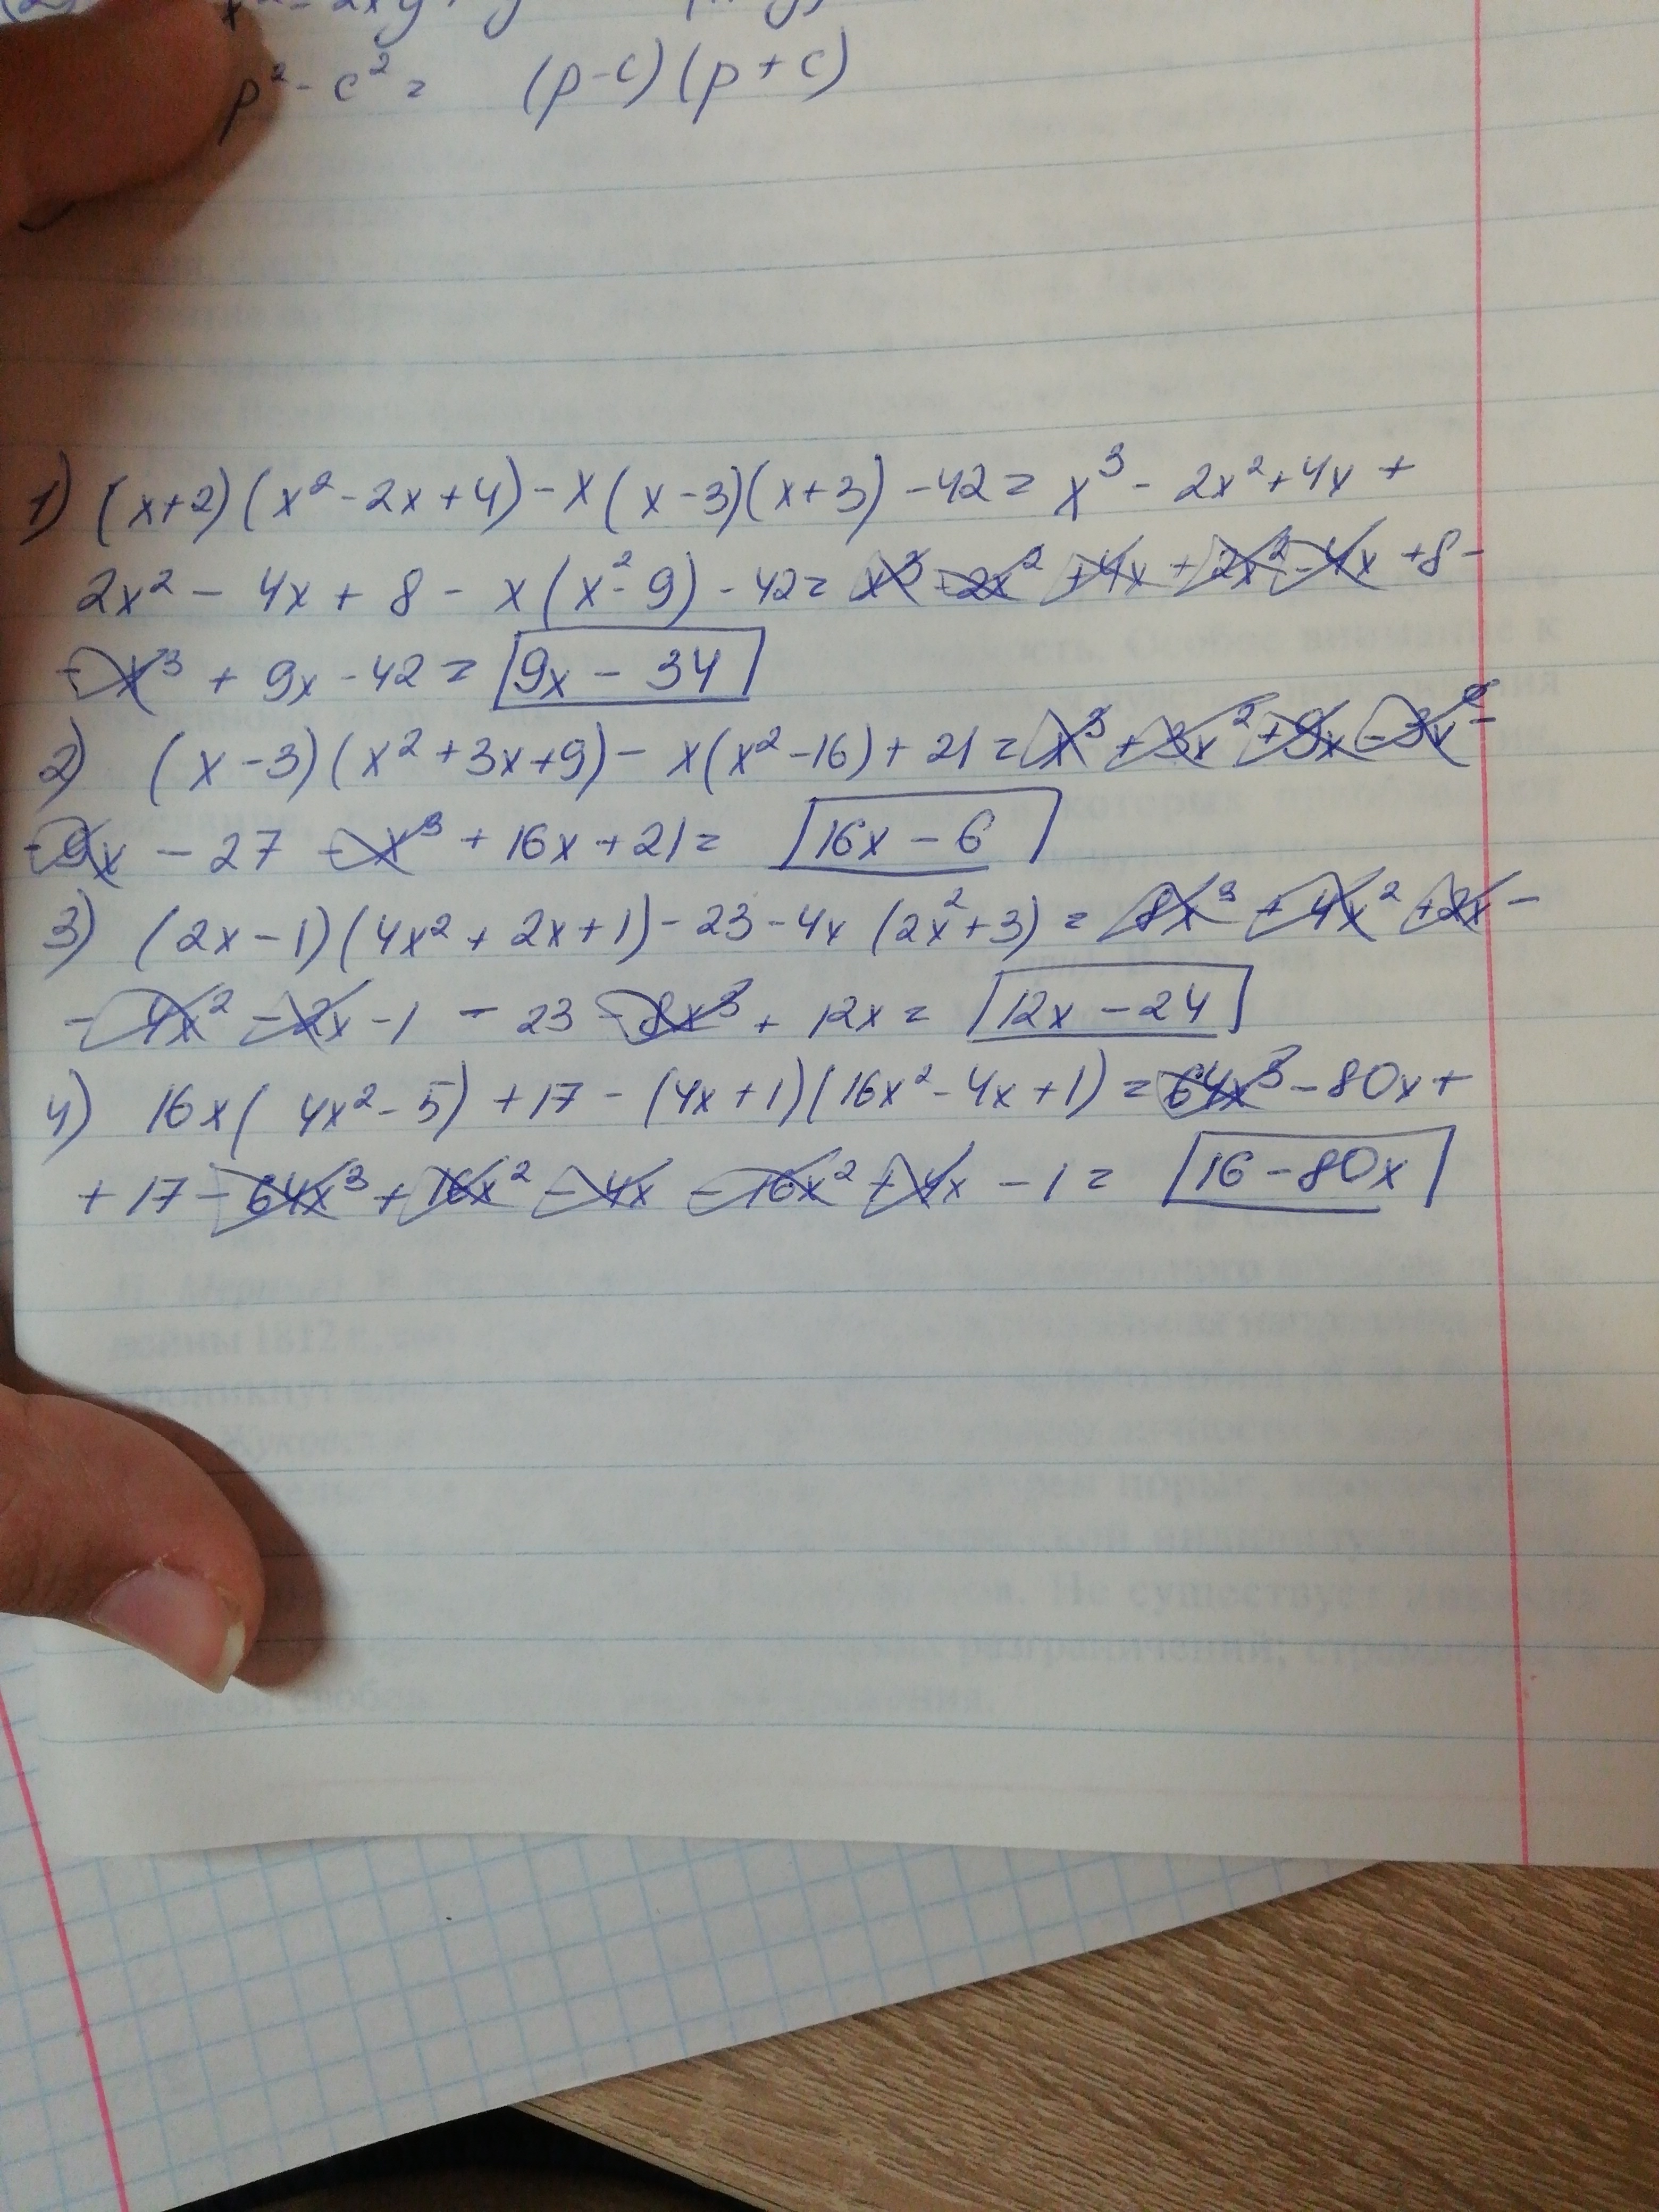 p² - c² = (p-c)(p+c)
1) (x+2)(x²-2x+4) - x(x-3)(x+3) -42 = x³ - 2x²+4x +
2x² - 4x + 8 - x(x²-9) - 42 = x³ - 2x² +4x + 2x² - 4x +8 -
- x³ + 9x - 42 = 9x - 34
2) (x-3)(x²+3x+9) - x(x²-16) + 21 = x³ + 3x² + 9x - 3x² -
- 9x - 27 - x³ + 16x + 21 = 16x - 6
3) (2x-1)(4x² + 2x+1) - 23 - 4x (2x²+3) = 8x³ + 4x² + 2x -
- 4x² - 2x - 1 - 23 - 8x³ + 12x = 12x - 24
4) 16x( 4x² - 5) + 17 - (4x+1)(16x² - 4x + 1) = 64x³ - 80x +
+ 17 - 64x³ + 16x² - 4x - 16x² + 4x - 1 = 16 - 80x